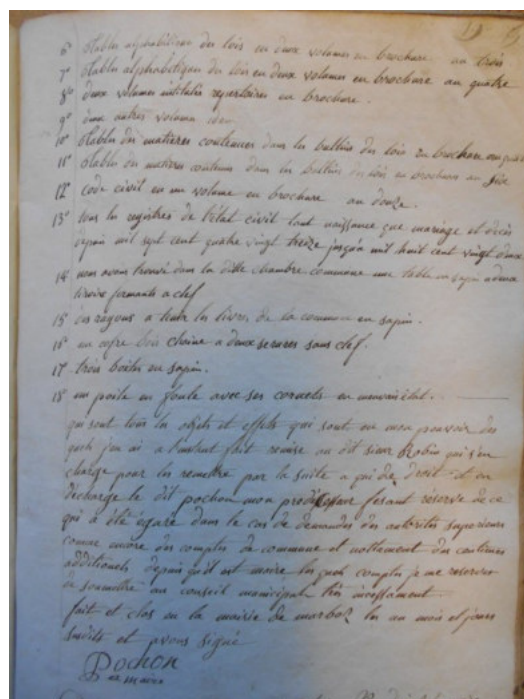 6° tables alphabétique des lois en deux volumes en brochure an trois
7° tables alphabétique des lois en deux volumes en brochure an quatre
8° deux volumes intitulés repertoires en brochure.
9° deux autres volumes idem
10° tables des matières contenues dans les bultin des lois en brochure an
11° tables des matieres contenues dans les bultin des lois en brochure an six
12° code civil en un volume en brochure an douze.
13° tous les registres de l'état civil tant naissance que mariage et décès
depuis mil sept cent quatre vingt treize jusqu'a mil huit cent vingt deux
14° nous avons trouvé dans la ditte chambre commune une table en sapin a deux
tiroirs formants a clef
15° des rayons a tenir les livres de la commune en sapin.
16° un cofre bois chaine a deux serures sans clef.
17° trois boites en sapin.
18° un poile en foule avec ses cornets en mauvais état.
qui sont tous les objets et effets qui sont en mon pouvoir des
quels j'en ai a l'instant fait remise au dit sieur Robin qui s'en
charge pour les remettre par la suite a qui de droit et en
décharge le dit pochon mon prédécesseur fesant reserve de ce
qui a été égaré dans le cas de demandes des autorités superieurs
comme encore des comptes de commune et nottement des centimes
additionels depuis qu'il est maire les quels comptes je me reserves
de soumettre au conseil municipal très incessament.
fait et clos en la mairie de marboz les an mois et jours
susdits et avons signé
Pochon
ex maire